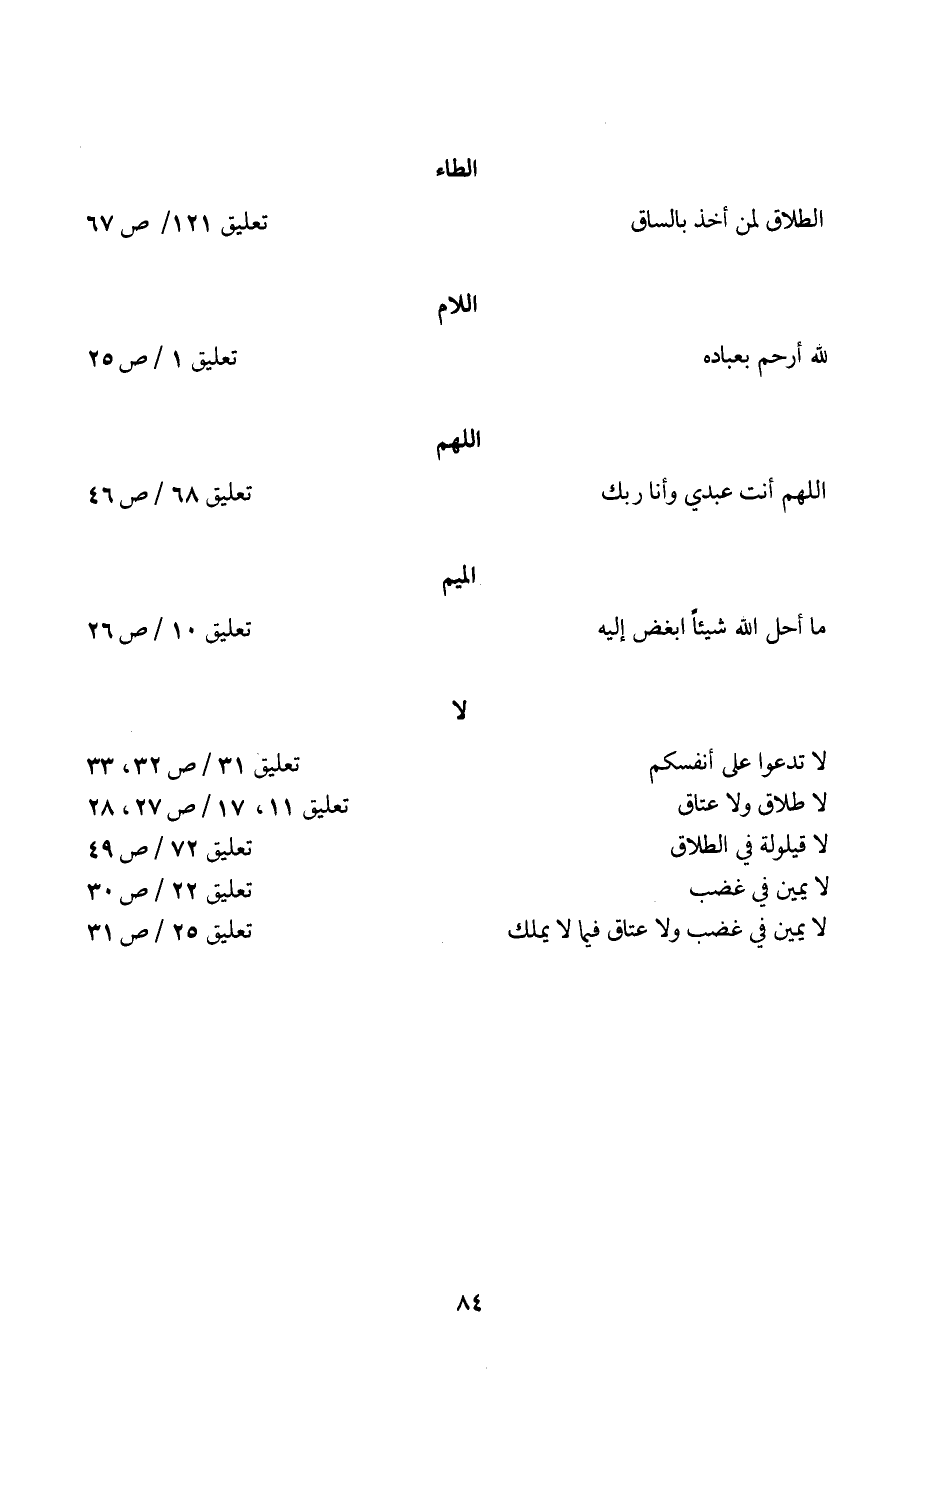 الطاء
الطلاق لمن أخذ بالساق تعليق ١٢١/ ص ٦٧
اللام
لله أرحم بعباده تعليق ١ / ص ٢٥
اللهم
اللهم أنت عبدي وأنا ربك تعليق ٦٨ / ص ٤٦
الميم
ما أحل الله شيئاً ابغض إليه تعليق ١٠ / ص ٢٦
لا
لا تدعوا على أنفسكم تعليق ٣١ / ص ٣٢، ٣٣
لا طلاق ولا عتاق تعليق ١١، ١٧ / ص ٢٧، ٢٨
لا قيلولة في الطلاق تعليق ٧٢ / ص ٤٩
لا يمين في غضب تعليق ٢٢ / ص ٣٠
لا يمين في غضب ولا عتاق فيما لا يملك تعليق ٢٥ / ص ٣١
٨٤